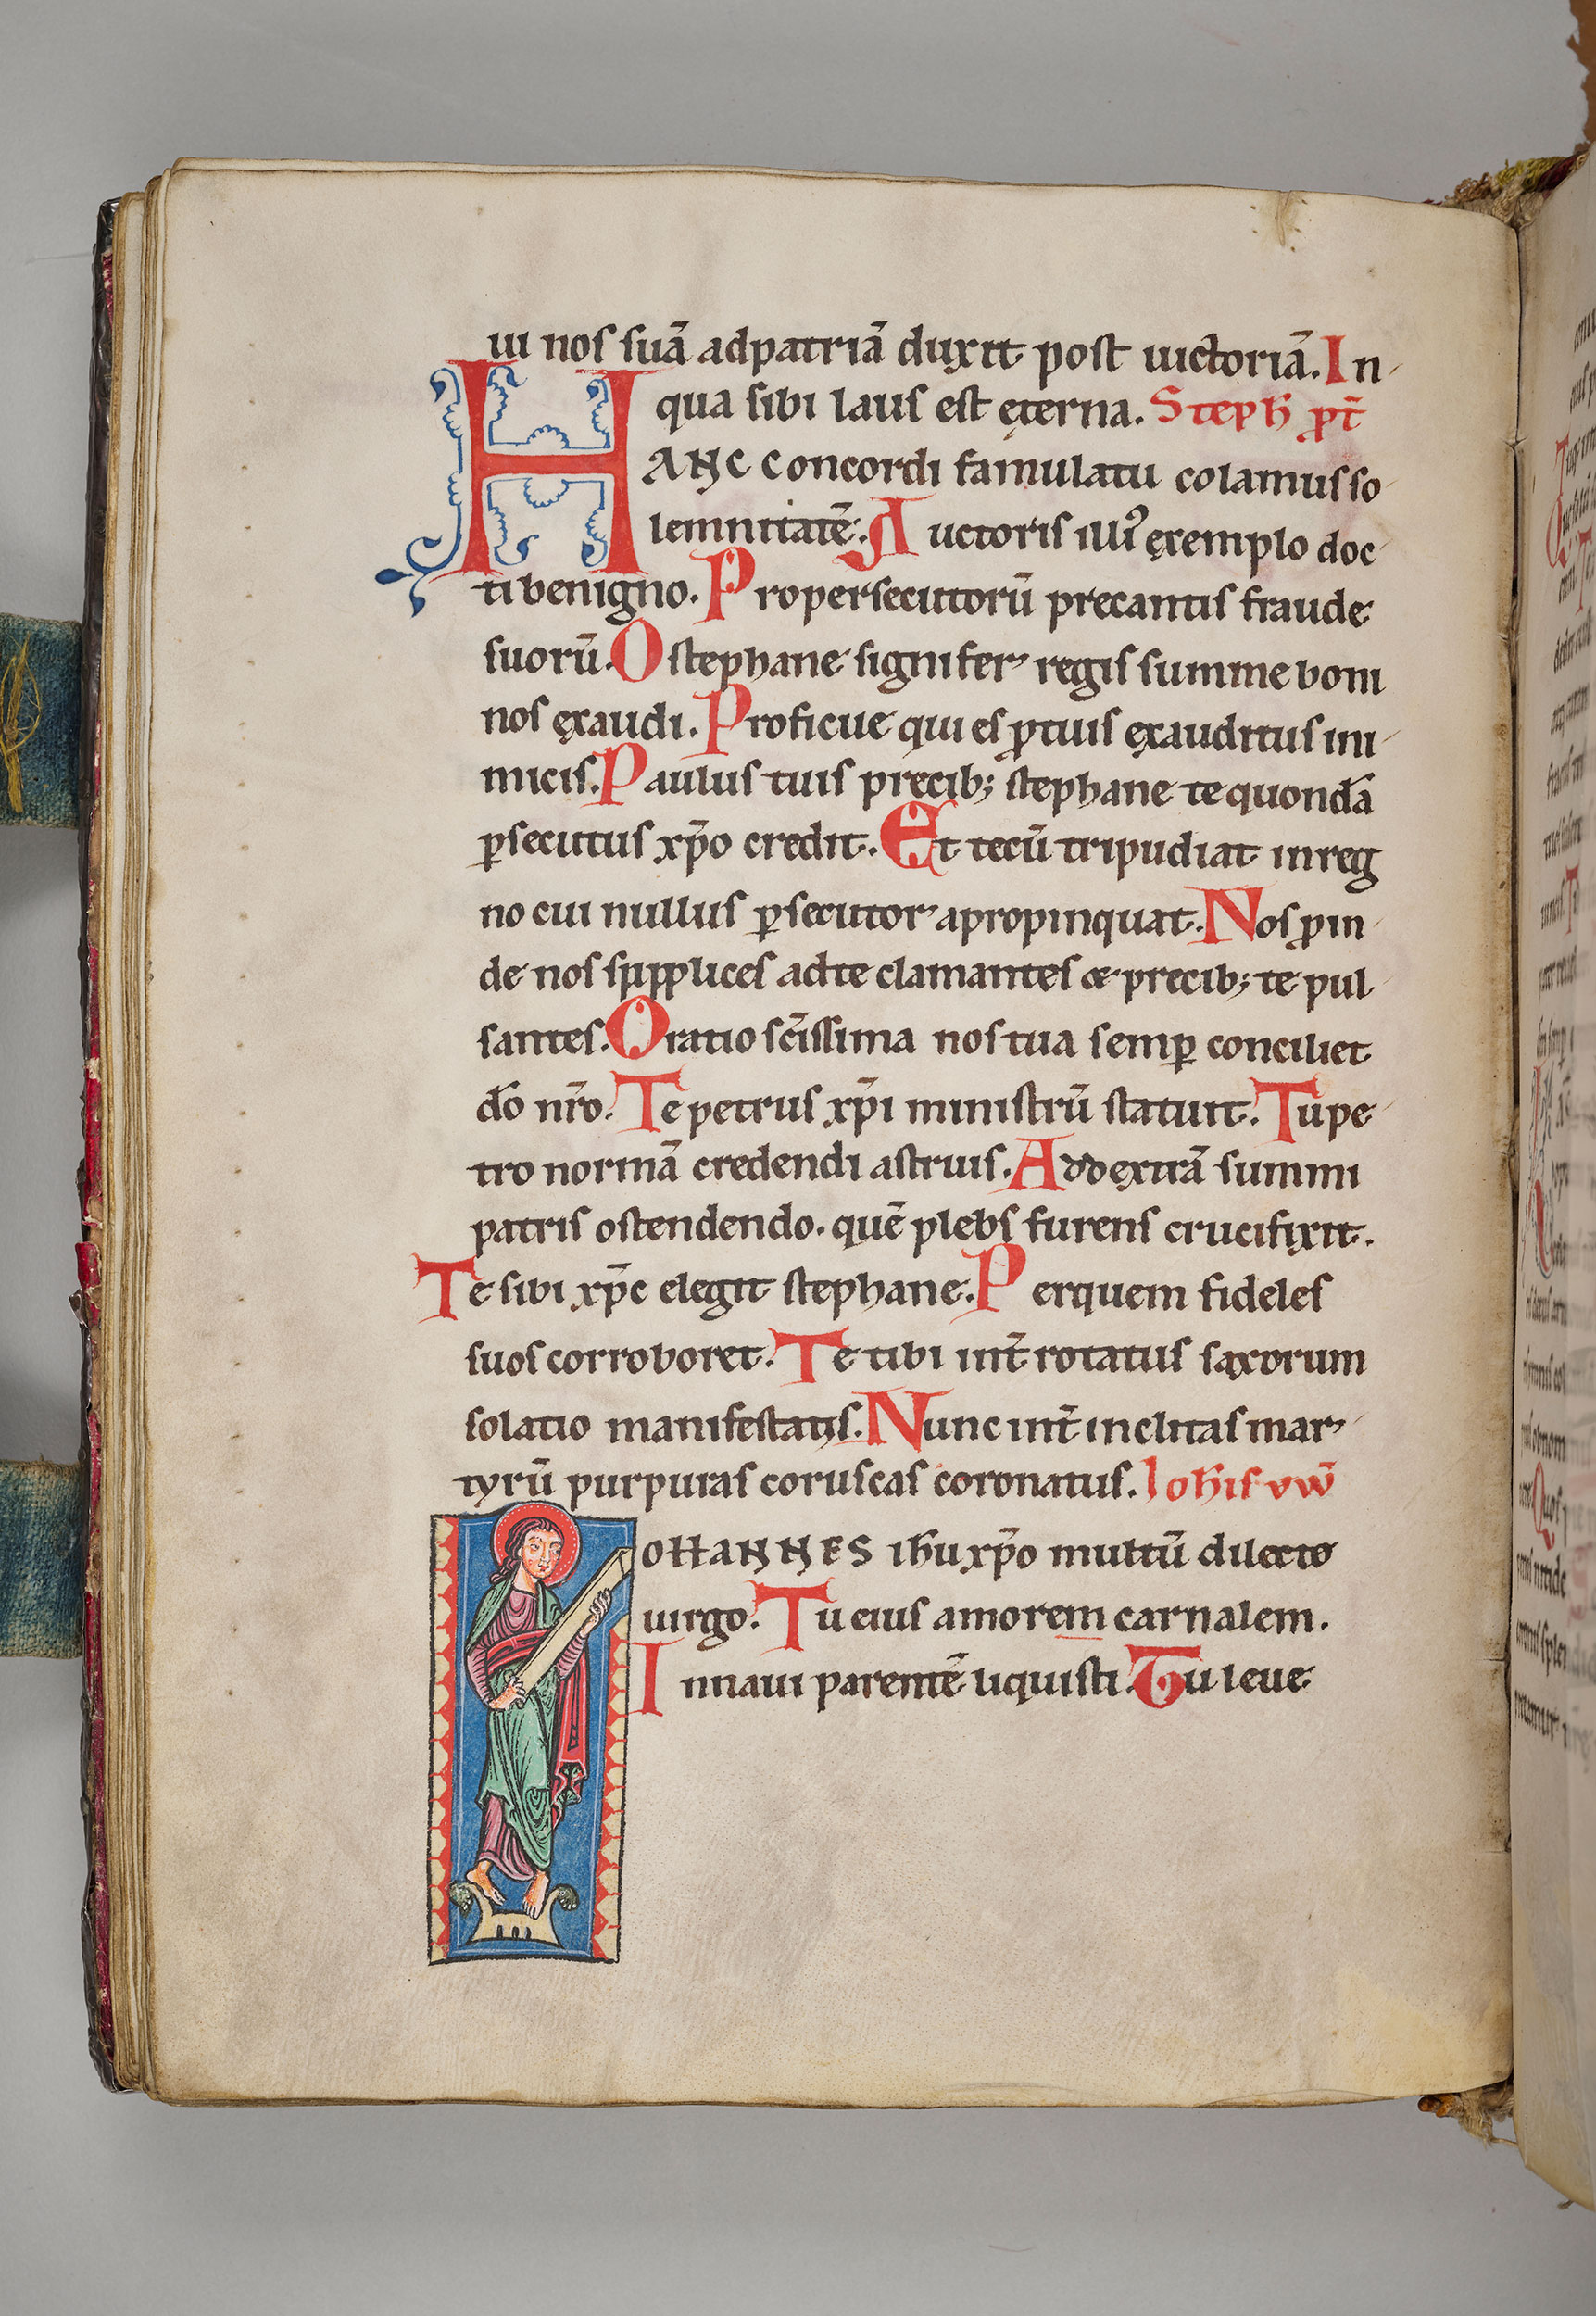 ui nos suā ad patriā duxit post uictoriā. In
qua sibi laus est ęterna. Steph prt̄
HANC concordi famulatu colamus so
lemnitatē. Auctoris illiꝰ exemplo doc
ti benigno. Pro persecutorū precantis fraude
suorū. O stephane signifer regis summe boni
nos exaudi. Proficue qui es ꝓ tuis exauditus ini
micis. Paulus tuis precib; stephane te quondā
ꝑsecutus xp̄o credit. Et tecū tripudiat in reg
no cui nullus ꝑsecutor apropinquat. Nos ꝓin
de nos supplices ad te clamantes & precib; te pul
santes. Oratio sc̄issima nos tua semꝑ conciliet
dō nr̄o. Te petrus xp̄i ministrū statuit. Tu pe
tro normā credendi astruis. Ad dextrā summi
patris ostendendo. quē plebs furens crucifixit.
Te sibi xp̄c elegit stephane. Per quem fideles
suos corroboret. Te tibi int̄ rotatus saxorum
solatio manifestatis. Nunc int̄ inclitas mar
tyrū purpuras coruscas coronatus. Iohis ew̄
IOHANNES ih̄u xp̄o multū dilecto
uirgo. Tu eius amorem carnalem.
In naui parentē liquisti. Tu leue